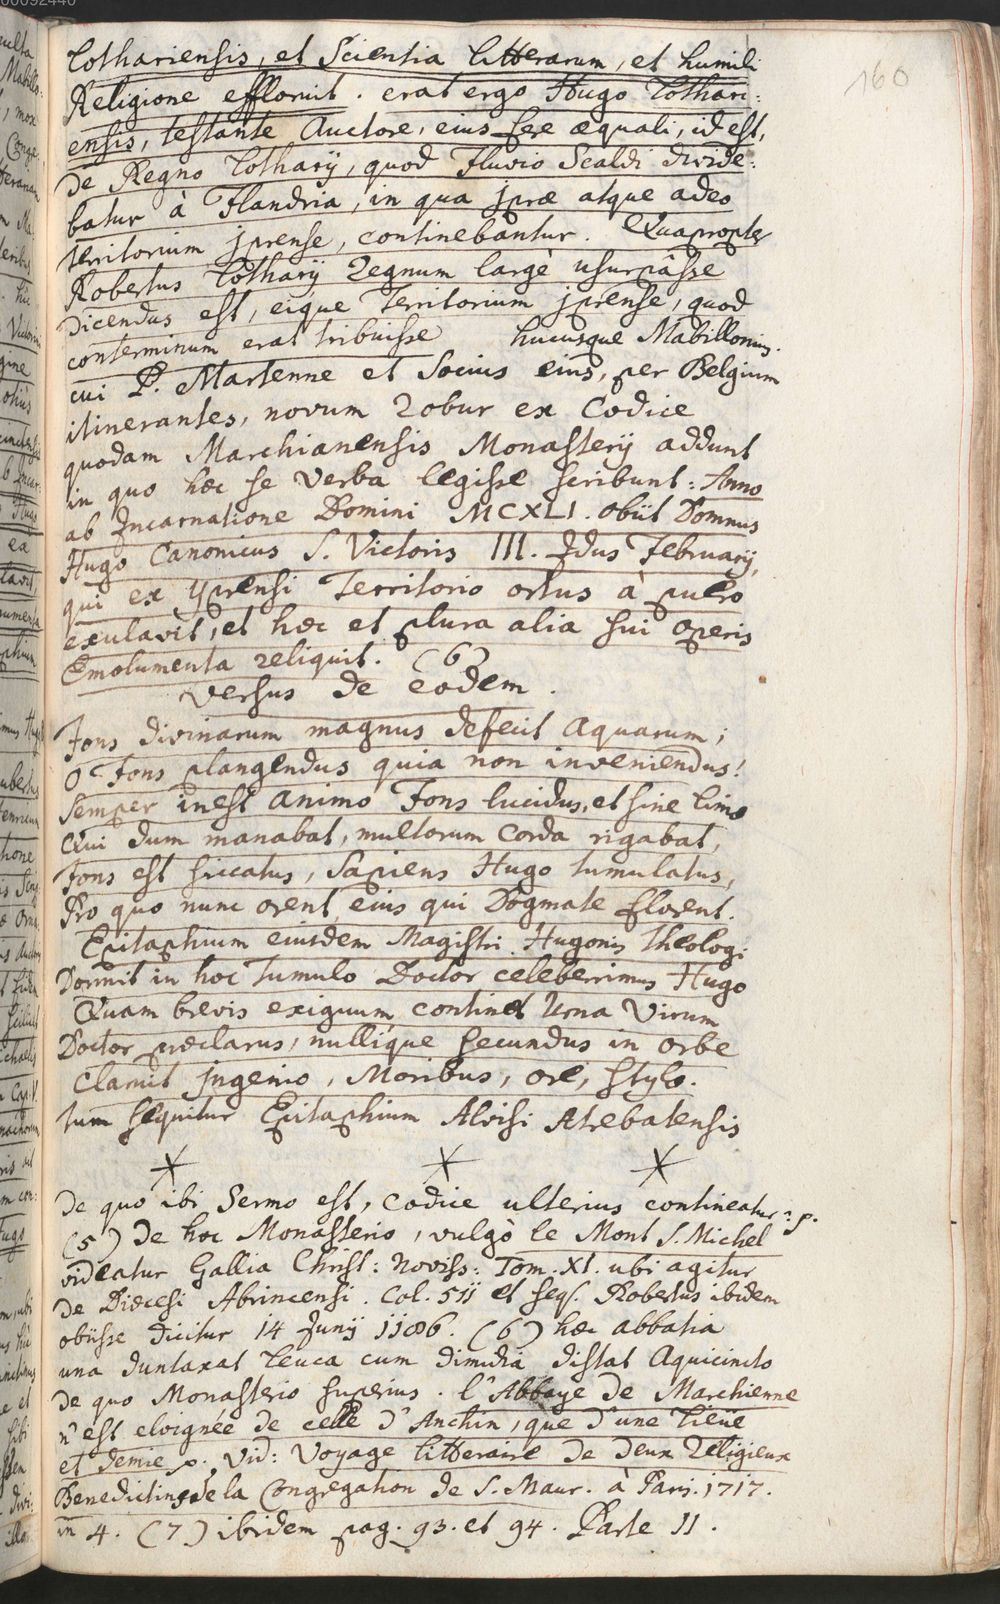 160
Lothariensis, et Scientia litterarum, et humili
Religione effloruit. erat ergo Hugo Lothari:
ensis, testante Auctore, eius fere æquali, id est,
de Regno Lotharij, quod Fluvio Scaldi divide:
batur à Flandria, in qua jpræ atque adeo
territorium jprense, continebantur. Quapropter
Robertus Lotharij Regnum largè usurpâsse
dicendus est, eique Territorium jprense, quod
conterminum erat tribuisse hucusque Mabillonius.
cui P. Martenne et Socius eius, per Belgium
itinerantes, novum robur ex Codice
quodam Marchianensis Monasterij addunt
in quo hæc se verba legisse scribunt: Anno
ab Incarnatione Domini MCXLI. obiit Domnus
Hugo Canonicus S. Victoris III. Idus February,
qui ex yprensi Territorio ortus à puero
exulavit, et hæc et plura alia sui operis
Emolumenta reliquit. (6)
versus de eodem.
Fons divinarum magnus defecit Aquarum;
O Fons plangendus quia non inveniendus!
Semper inest animo Fons lucidus, et sine limo
Qui dum manabat, multorum corda rigabat,
Fons est siccatus, Sapiens Hugo tumulatus,
Pro quo nunc orent, eius qui Dogmate florent.
Epitaphium eiusdem Magistri Hugonis Theologi
Dormit in hoc Tumulo Doctor celeberrimus Hugo
Quam brevis exiguum continet Urna Virum
Doctor præclarus, nullique secundus in orbe
Claruit jngenio, Moribus, ore, stylo.
tum sequitur Epitaphium Alvisi Atrebatensis
* * *
de quo ibi Sermo est, codice ulterius contineatur: p.
(5) de hoc Monasterio, vulgò le Mont S. Michel
videatur Gallia Christ: Noviss: Tom. XI. ubi agitur
de Diœcesi Abrincensi. Col. 511 et seq. Robertus ibidem
obiisse dicitur 14 Junij 1186. (6) hæc abbatia
una duntaxat leuca cum dimidia distat Aquicincto
de quo Monasterio superius. l'Abbaye de Marchienne
n'est eloignée de celle d'Anchin, que d'une lieüe
et demie p. vid: Voyage litteraire de deux Religieux
Benedictins de la Congregation de S. Maur. à Paris. 1717.
in 4. (7) ibidem pag. 93. et 94. Parte II.